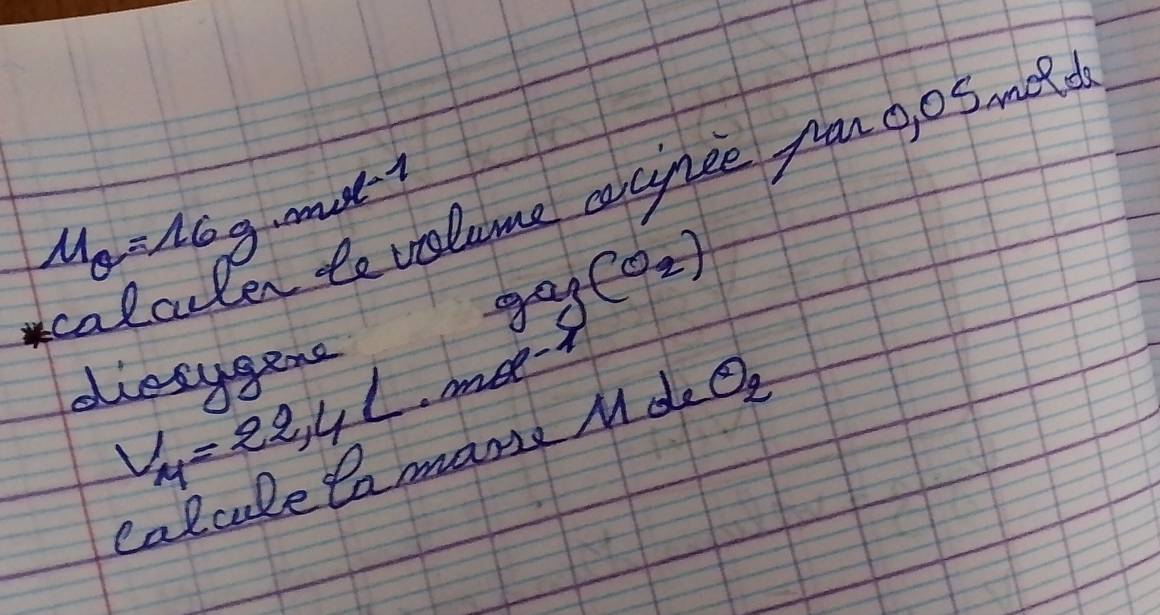 M₀ = 16 g.mol⁻¹
*calculer le volume occipée par 0,05 mol de
dioxygene gaz (O₂)
Vₘ = 22,4 L.mol⁻¹
calcule la masse M de O₂